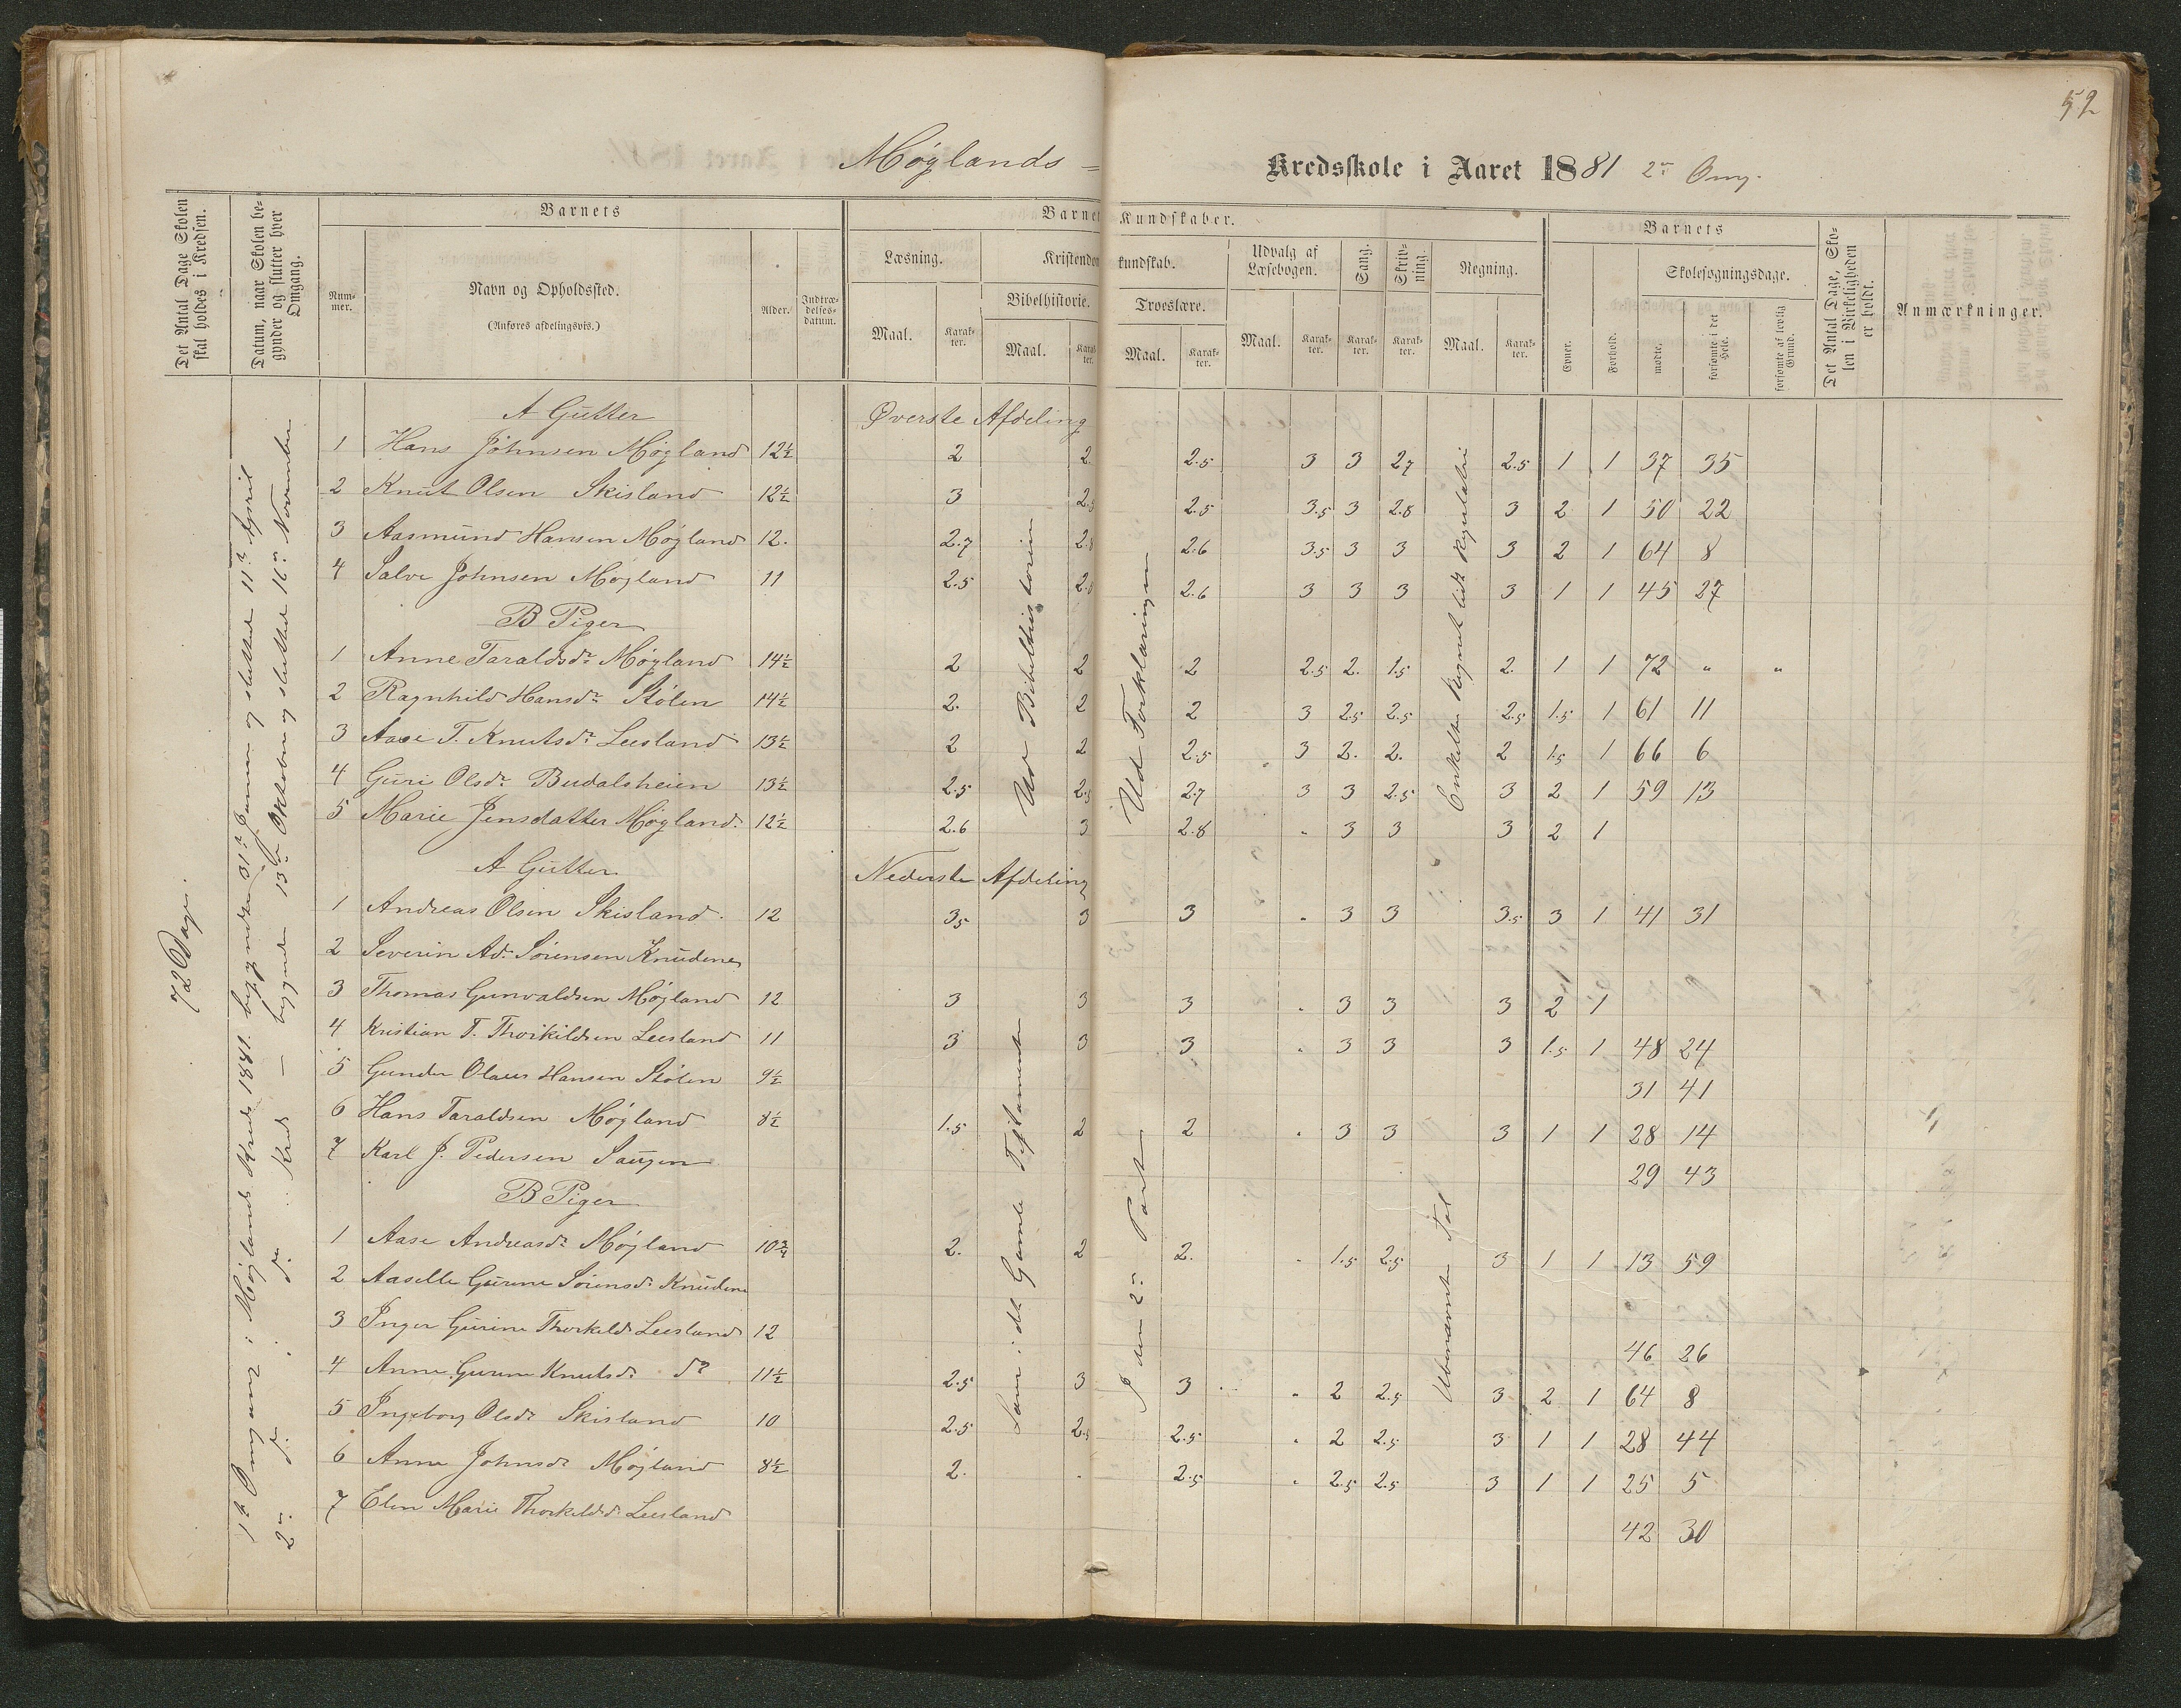 52
Møglands =
Kredsskole i Aaret 1881 2en Omg.
Det Antal Dage Skolen skal holdes i Kredsen.
Datum, naar Skolen begynder og slutter hver Omgang.
Barnets
Nummer.
Navn og Opholdssted.
(Anføres afdelingsvis.)
Alder.
Indtrædelsesdatum.
Barnet
Kundskaber.
Læsning.
Maal.
Karakter.
Kristendom
kundskab.
Bibelhistorie.
Maal.
Karakter.
Troeslære.
Maal.
Karakter.
Udvalg af Læsebogen.
Maal.
Karakter.
Sang.
Karakter.
Skrivning.
Karakter.
Regning.
Maal.
Karakter.
Barnets
Evner.
Forhold.
Skolesøgningsdage.
mødte.
forsømte i det Hele.
forsømte af lovlig Grund.
Det Antal Dage, Skolen i Virkeligheden er holdt.
Anmærkninger.
72 Dage.
1ste Omgang i Møglands Kreds 1881 begyndte 31te Januar og sluttede 11te April
2en do i do Kreds — begyndte 13de Oktober og sluttede 16de November
A Gutter Øverste Afdeling
1 Hans Johnsen Møgland 12½ 2 2. 2.5 3 3 2.7 2.5 1 1 37 35
2 Knut Olsen Skisland 12½ 3 2.5 2.5 3.5 3 2.8 3 2 1 50 22
3 Aasmund Hansen Møgland 12. 2.7 2.8 2.6 3.5 3 3 3 2 1 64 8
4 Salve Johnsen Møgland 11 2.5 2.8 2.6 3 3 3 3 1 1 45 27
B Piger
1 Anne Taraldsdr Møgland 14½ 2 2 2 2.5 2. 1.5 2. 1 1 72 " "
2 Ragnhild Hansdr Stølen 14½ 2. 2 2 3 2.5 2.5 2.5 1.5 1 61 11
3 Aase T. Knutsdr Leesland 13½ 2 2 2.5 3 2. 2. 2 1.5 1 66 6
4 Guri Olsdr Budalsheien 13½ 2.5 2.5 2.7 3 3 2.5 3 2 1 59 13
5 Marie Jensdatter Møgland. 12½ 2.6 3 2.8 " 3 3 3 2 1
Ud Bibelhistorien
Ud Forklaringen
Enkelte Regnet lidt Reguladetri
A Gutter Nederste Afdeling
1 Andreas Olsen Skisland. 12 3.5 3 3 " 3 3 3.5 3 1 41 31
2 Severin Ad. Sørensen Knudene
3 Thomas Gunvaldsen Møgland 12 3 3 3 " 3 3 3 2 1
4 Kristian T. Thorkildsen Leesland 11 3 3 3 " 3 3 3 1.5 1 48 24
5 Gunder Olaus Hansen Stølen 9½ 31 41
6 Hans Taraldsen Møgland 8½ 1.5 2 2 " 3 3 3 1 1 28 14
7 Karl J. Pedersen Saugen 29 43
B Piger
1 Aase Andreasdr Møgland 10¾ 2. 2 2. " 1.5 2.5 3 1 1 13 59
2 Aaselle Gurine Sørensdr Knudene
3 Inger Gurine Thorkildsdr Leesland 12 46 26
4 Anne Gurine Knutsdr do 11½ 2.5 3 3 " 2 2.5 3 2 1 64 8
5 Ingeborg Olsdr Skisland 10 2.5 2.5 2.5 " 2 2.5 3 1 1 28 44
6 Anne Johnsdr Møgland 8½ 2. . 2.5 " 2.5 2.5 3 1 1 25 5
7 Elen Marie Thorkildsdr Leesland 42 30
Læm i det Gamle Testamente
I den 2en Part
Ubenævnte Tal